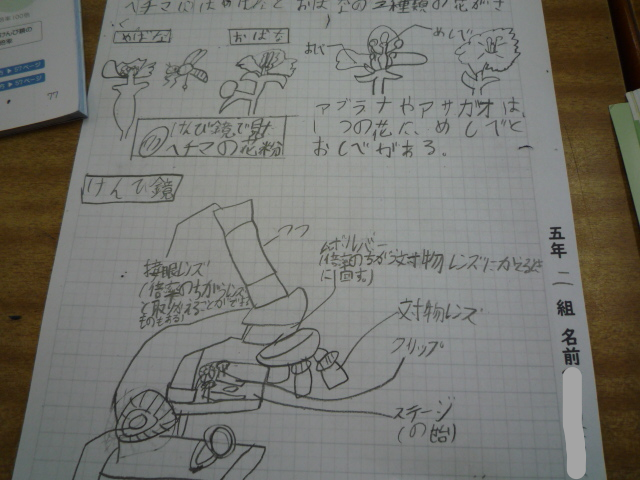 ヘチマにはめばなとおばなの二種類の花がさ
く
めばな
おばな
おしべ
めしべ
アブラナやアサガオは、
1つの花に、めしべと
おしべがある。
けんび鏡で見た
ヘチマの花粉
けんび鏡
つつ
接眼レンズ
(倍率のちがうレンズ
と取りかえることができる
ものもある)
レボルバー
(倍率のちがう対物レンズにかえるとき
に回す)
対物レンズ
クリップ
ステージ
(の台)
五年 二 組 名前
77